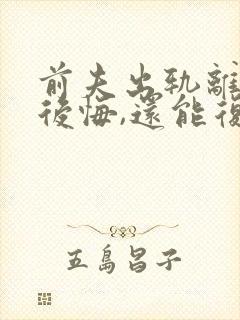 前夫出轨離
後悔,還能復
五島昌子